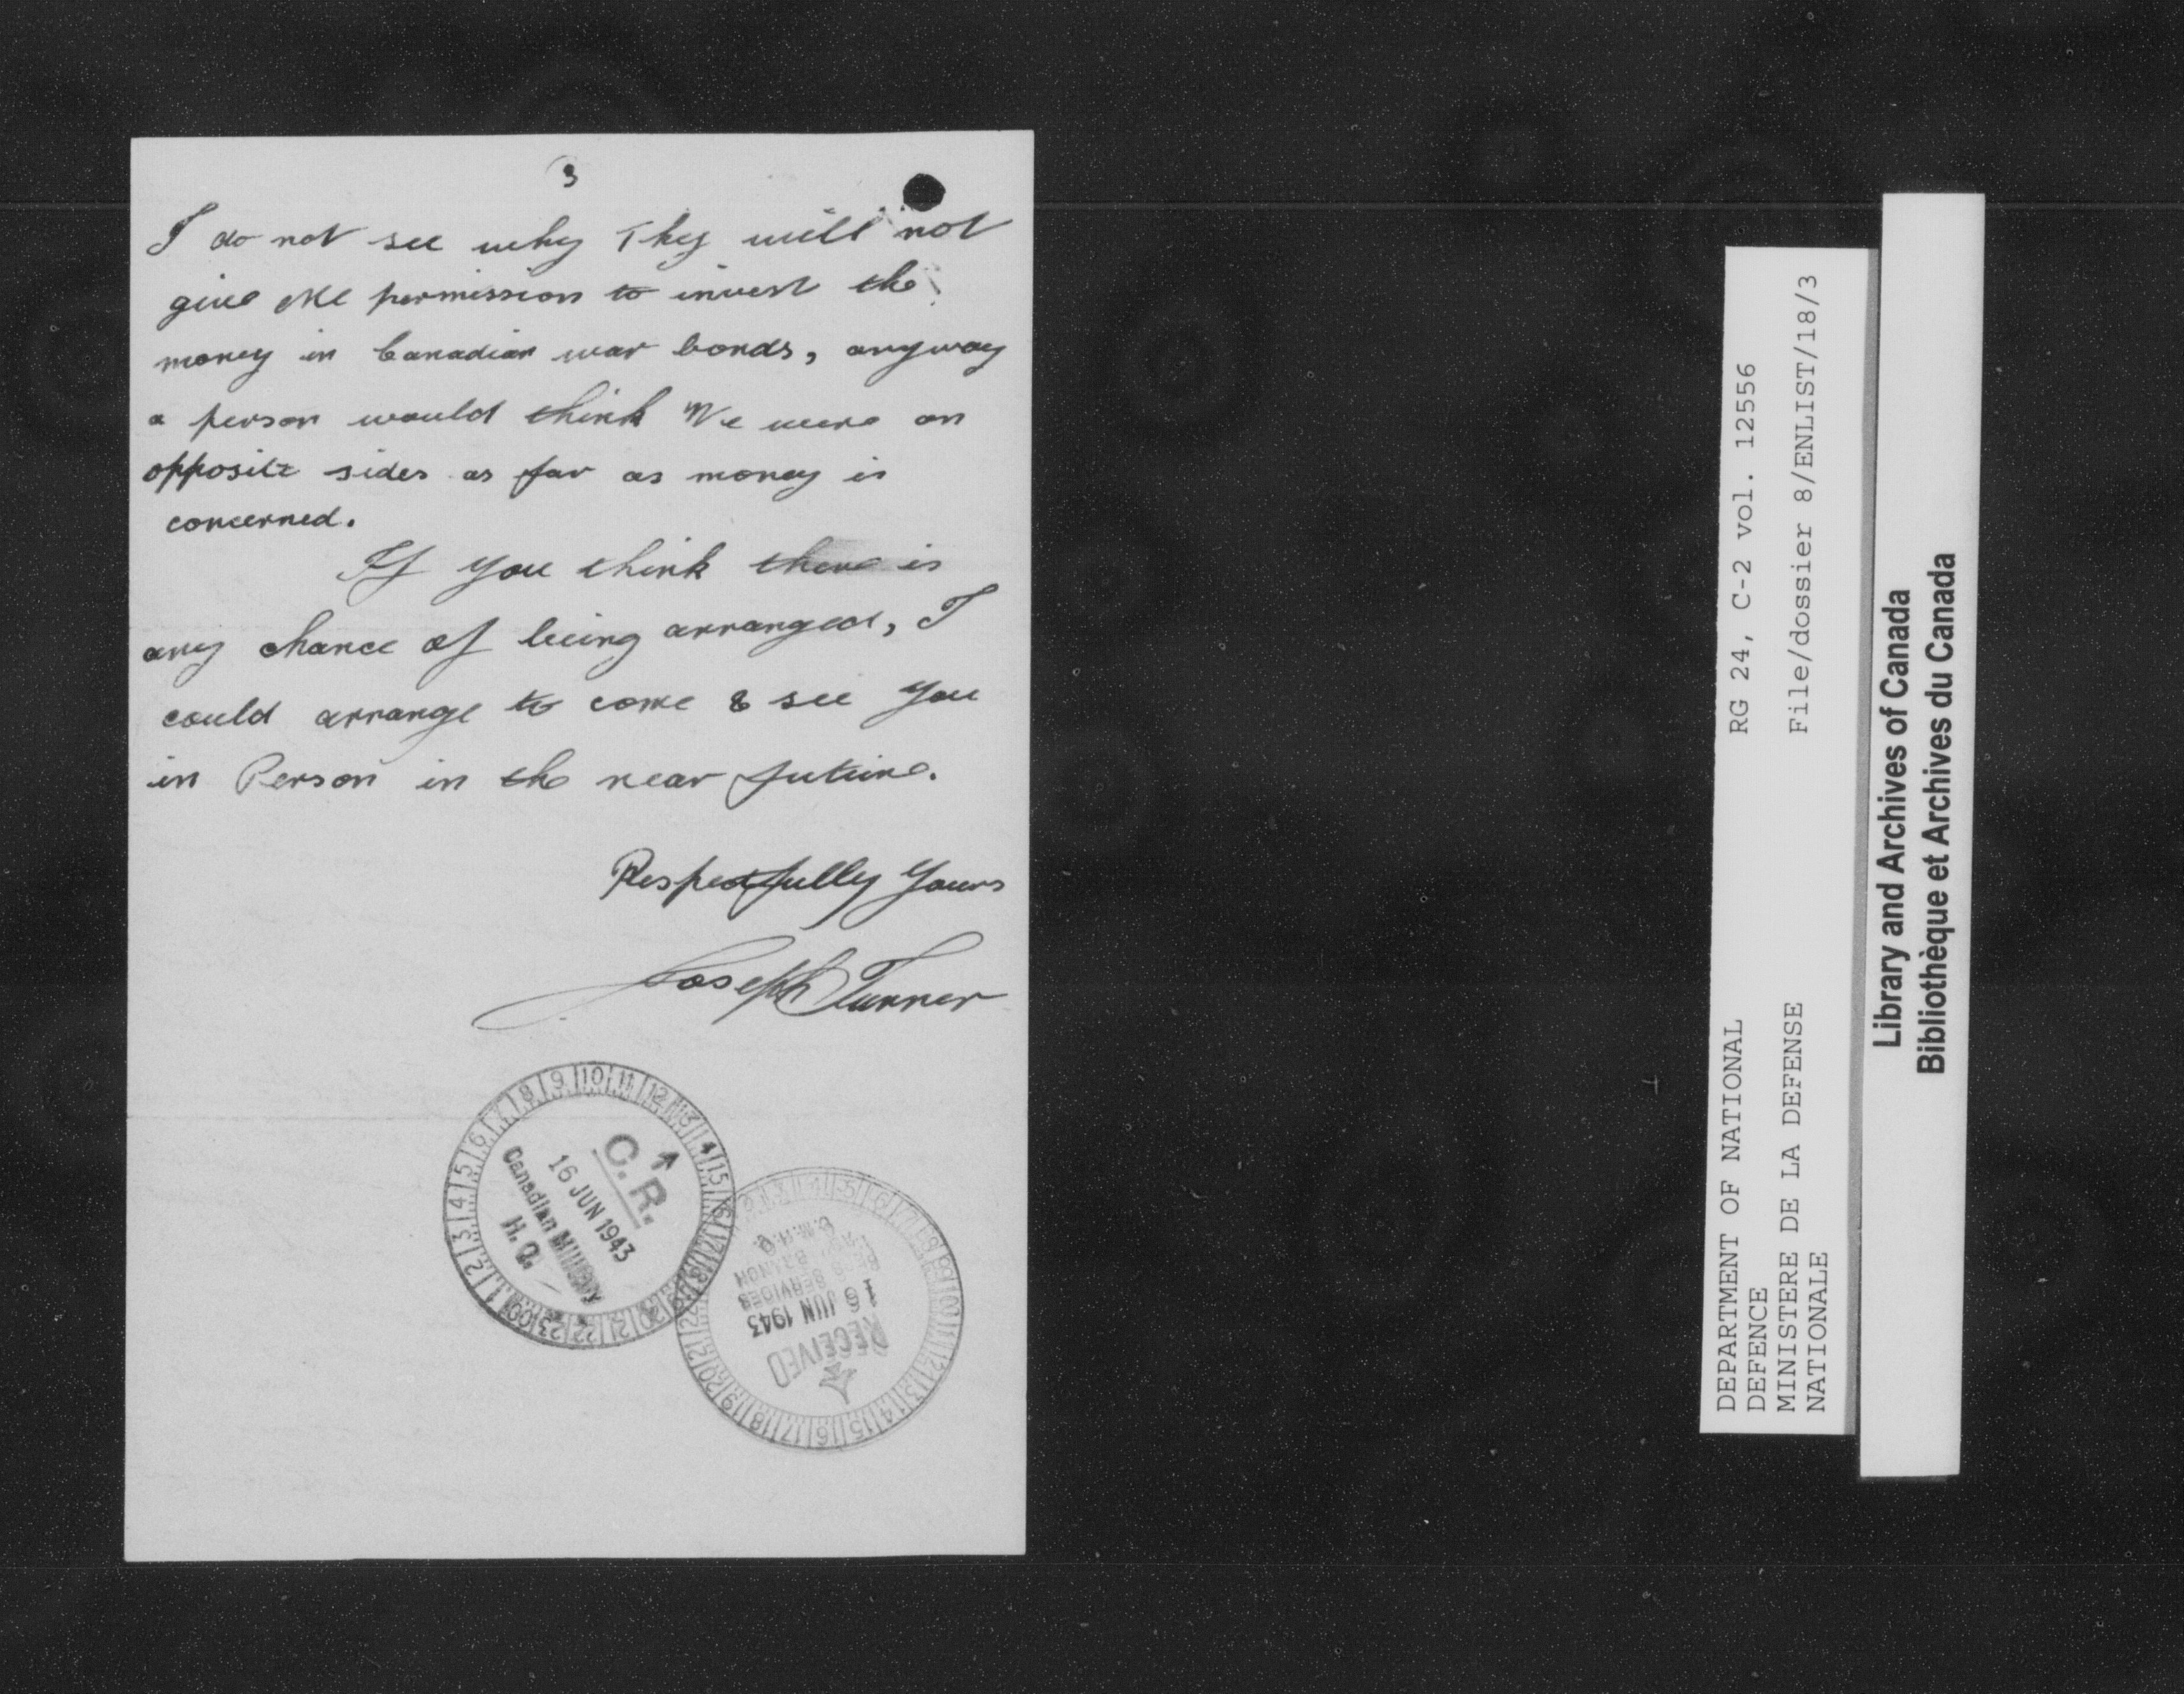 3
I do not see why They will not
give Me permission to invest the
money in Canadian war bonds, anyway
a person would think We were on
opposite sides as far as money is
concerned.
If you think there is
any chance of being arranged, I
could arrange to come & see you
in Person in the near future.
Respectfully Yours
Joseph Turner
C.R.
16 JUN 1943
Canadian Military
H.Q.
RECEIVED
16 JUN 1943
SERVICES
BRANCH
C.M.H.Q.
DEPARTMENT OF NATIONAL
DEFENCE
MINISTERE DE LA DEFENSE
NATIONALE
RG 24, C-2 vol. 12556
File/dossier 8/ENLIST/18/3
Library and Archives of Canada
Bibliothèque et Archives du Canada